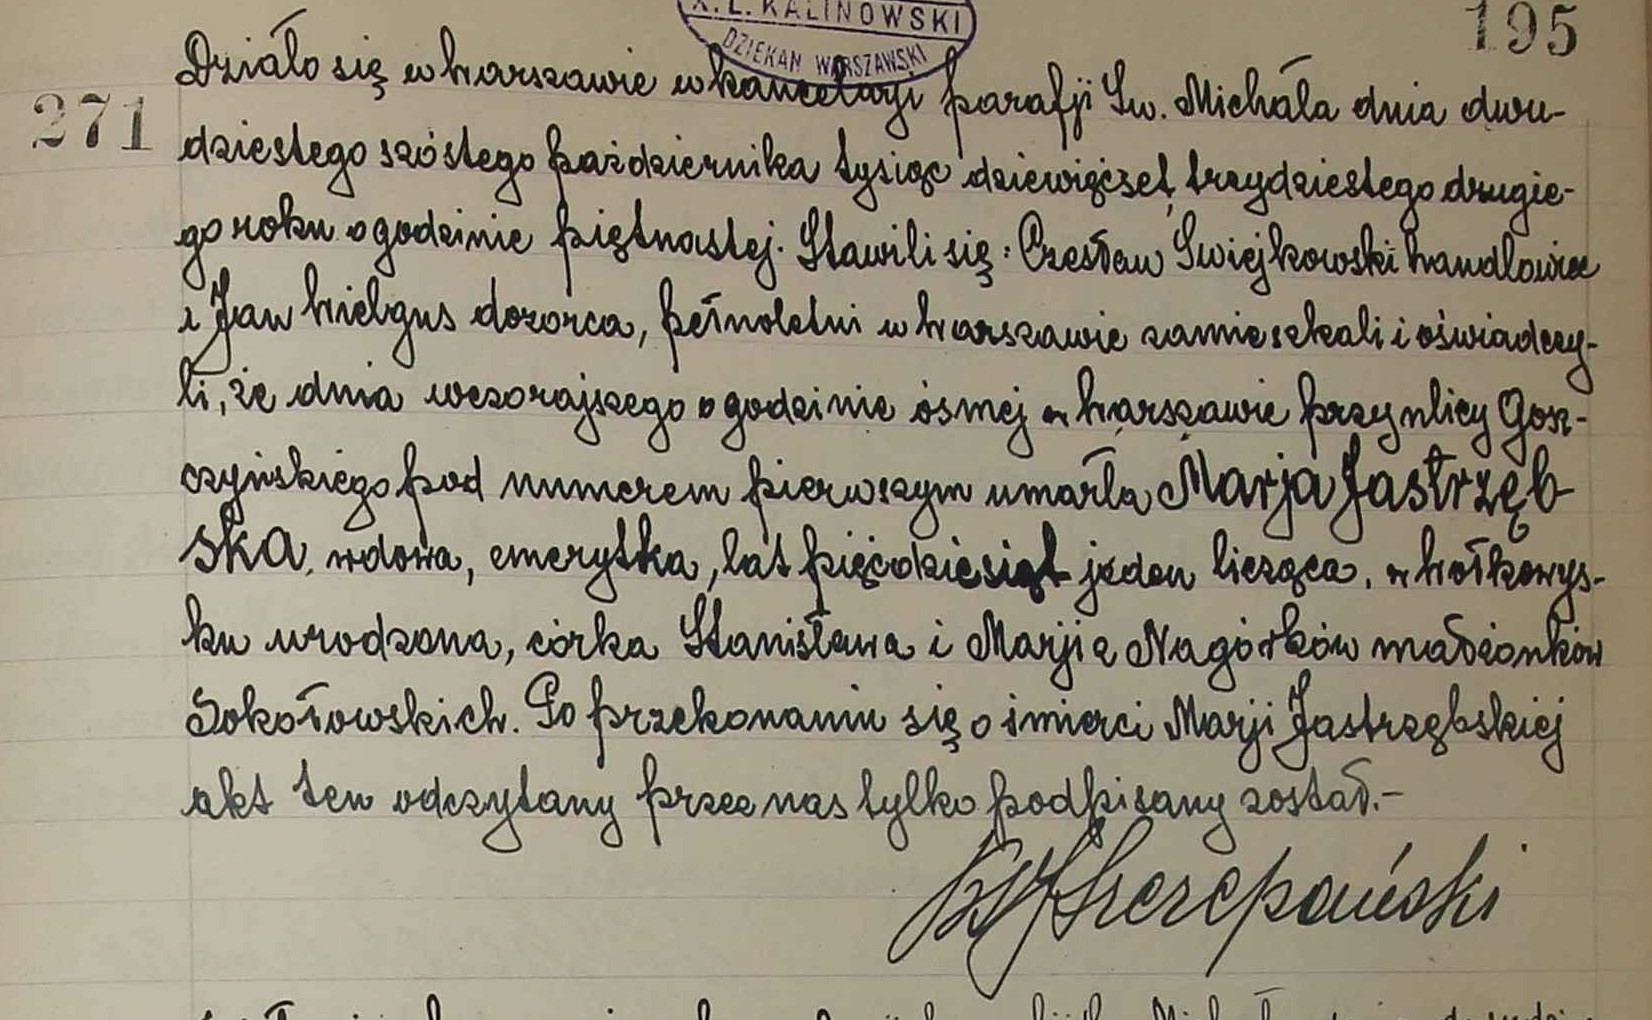 X. L. KALINOWSKI
DZIEKAN WARSZAWSKI
195
271
Działo się w Warszawie w kancelarji parafji Św. Michała dnia dwu-
dziestego szóstego października tysiąc dziewięćset trzydziestego drugie-
go roku o godzinie piętnastej. Stawili się: Czesław Świejkowski handlowiec
i Jan Wielgus dozorca, pełnoletni w Warszawie zamieszkali i oświadczy-
li, że dnia wczorajszego o godzinie ósmej w Warszawie przy ulicy Gosz-
czyńskiego pod numerem pierwszym umarła Marja Jastrzęb-
ska, wdowa, emerytka, lat pięćdziesiąt jeden licząca, w Wołkowys-
ku urodzona, córka Stanisława i Marji z Nagórków małżonków
Sokołowskich. Po przekonaniu się o śmierci Marji Jastrzębskiej
akt ten odczytany przez nas tylko podpisany został.-
Szczepański